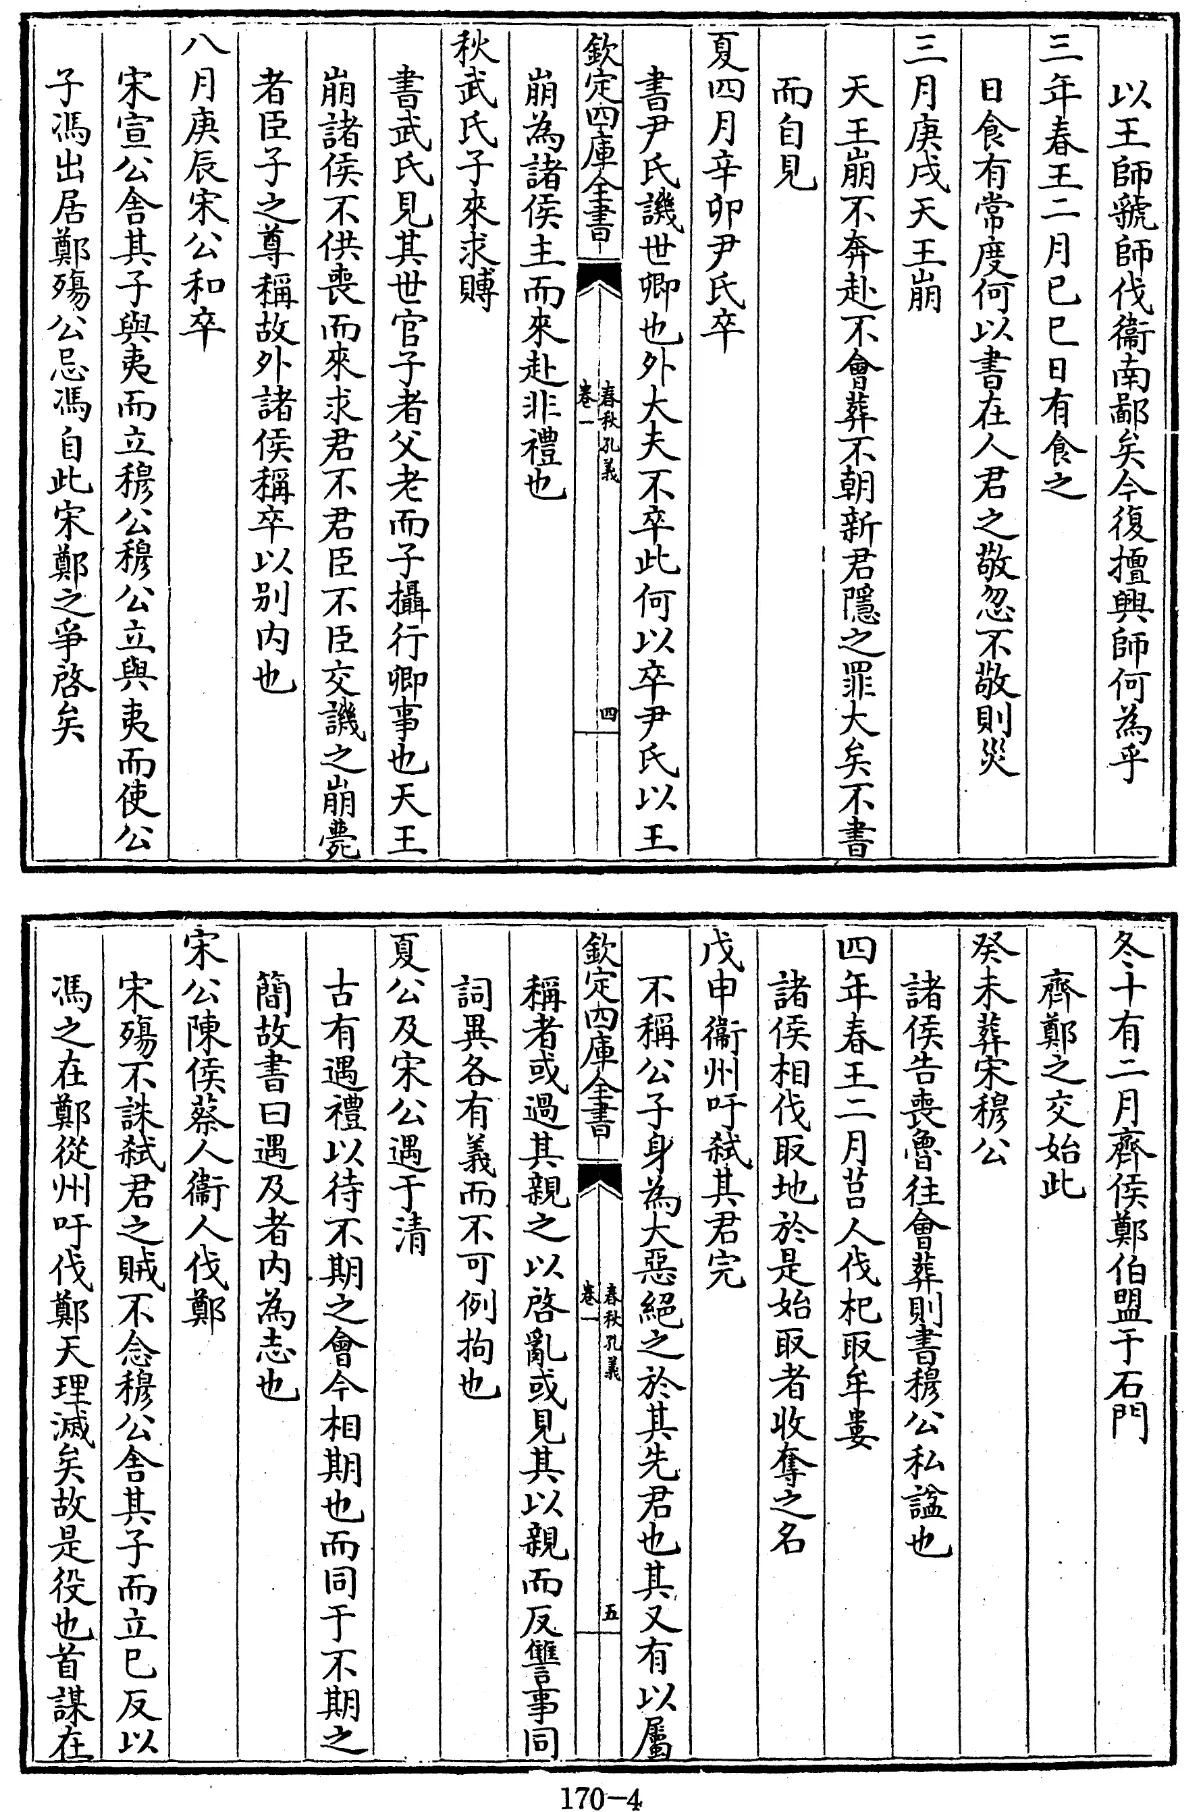 以王師虢師伐衞南鄙矣今復擅興師何為乎
三年春王二月己巳日有食之
日食有常度何以書在人君之敬忽不敬則災
三月庚戌天王崩
天王崩不奔赴不會葬不朝新君隱之罪大矣不書
而自見
夏四月辛卯尹氏卒
書尹氏譏世卿也外大夫不卒此何以卒尹氏以王
欽定四庫全書
春秋孔義
卷一
四
崩為諸侯主而來赴非禮也
秋武氏子來求賻
書武氏見其世官子者父老而子攝行卿事也天王
崩諸侯不供喪而來求君不君臣不臣交譏之崩薨
者臣子之尊稱故外諸侯稱卒以别内也
八月庚辰宋公和卒
宋宣公舍其子與夷而立穆公穆公立與夷而使公
子馮出居鄭殤公忌馮自此宋鄭之爭啓矣
冬十有二月齊侯鄭伯盟于石門
齊鄭之交始此
癸未葬宋穆公
諸侯告喪魯往會葬則書穆公私諡也
四年春王二月莒人伐杞取牟婁
諸侯相伐取地於是始取者收奪之名
戊申衞州吁弑其君完
不稱公子身為大惡絕之於其先君也其又有以屬
欽定四庫全書
春秋孔義
卷一
五
稱者或過其親之以啓亂或見其以親而反讐事同
詞異各有義而不可例拘也
夏公及宋公遇于清
古有遇禮以待不期之會今相期也而同于不期之
簡故書曰遇及者内為志也
宋公陳侯蔡人衞人伐鄭
宋殤不誅弑君之賊不念穆公舍其子而立已反以
馮之在鄭從州吁伐鄭天理滅矣故是役也首謀在
170-4